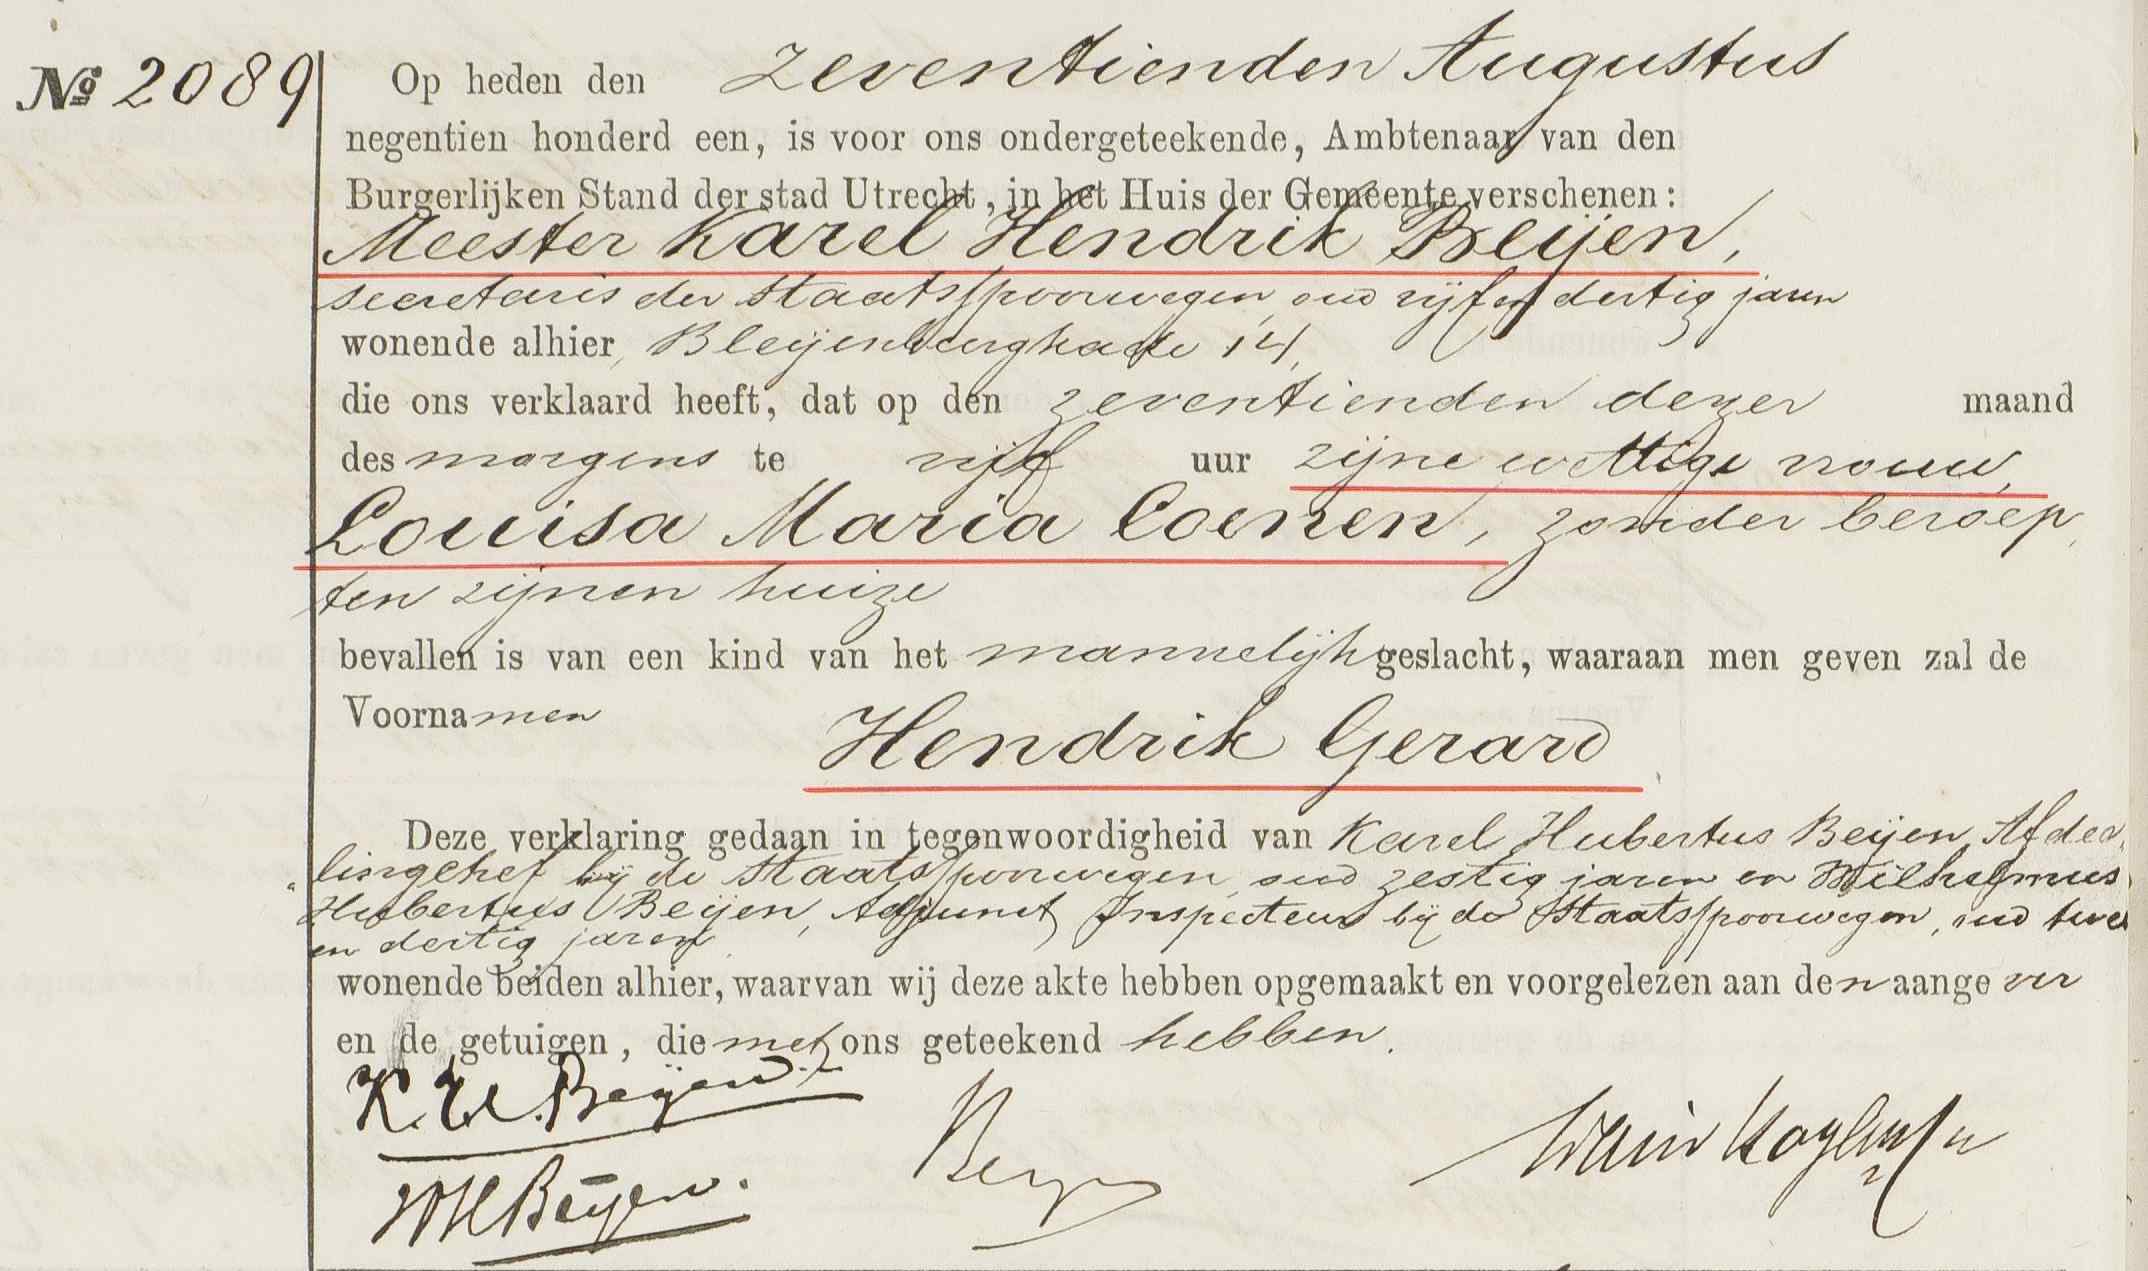 No 2089
Op heden den zeventienden Augustus
negentien honderd een, is voor ons ondergeteekende, Ambtenaar van den
Burgerlijken Stand der stad Utrecht, in het Huis der Gemeente verschenen:
Meester Karel Hendrik Beijen,
secretaris der Staatsspoorwegen, oud vijf en dertig jaren
wonende alhier, Bleijenburgkade 14,
die ons verklaard heeft, dat op den zeventienden dezer maand
des morgens te vijf uur zijne wettige vrouw,
Louisa Maria Coenen, zonder beroep,
ten zijnen huize
bevallen is van een kind van het mannelijk geslacht, waaraan men geven zal de
Voornamen
Hendrik Gerard
Deze verklaring gedaan in tegenwoordigheid van Karel Hubertus Beijen, Afdee-
lingchef bij de Staatsspoorwegen, oud zestig jaren en Wilhelmus
Hubertus Beijen, Adjunct Inspecteur bij de Staatsspoorwegen, oud twee
en dertig jaren,
wonende beiden alhier, waarvan wij deze akte hebben opgemaakt en voorgelezen aan den aangever
en de getuigen, die met ons geteekend hebben.
K. H. Beijen.
Beijen
WHBeijen.